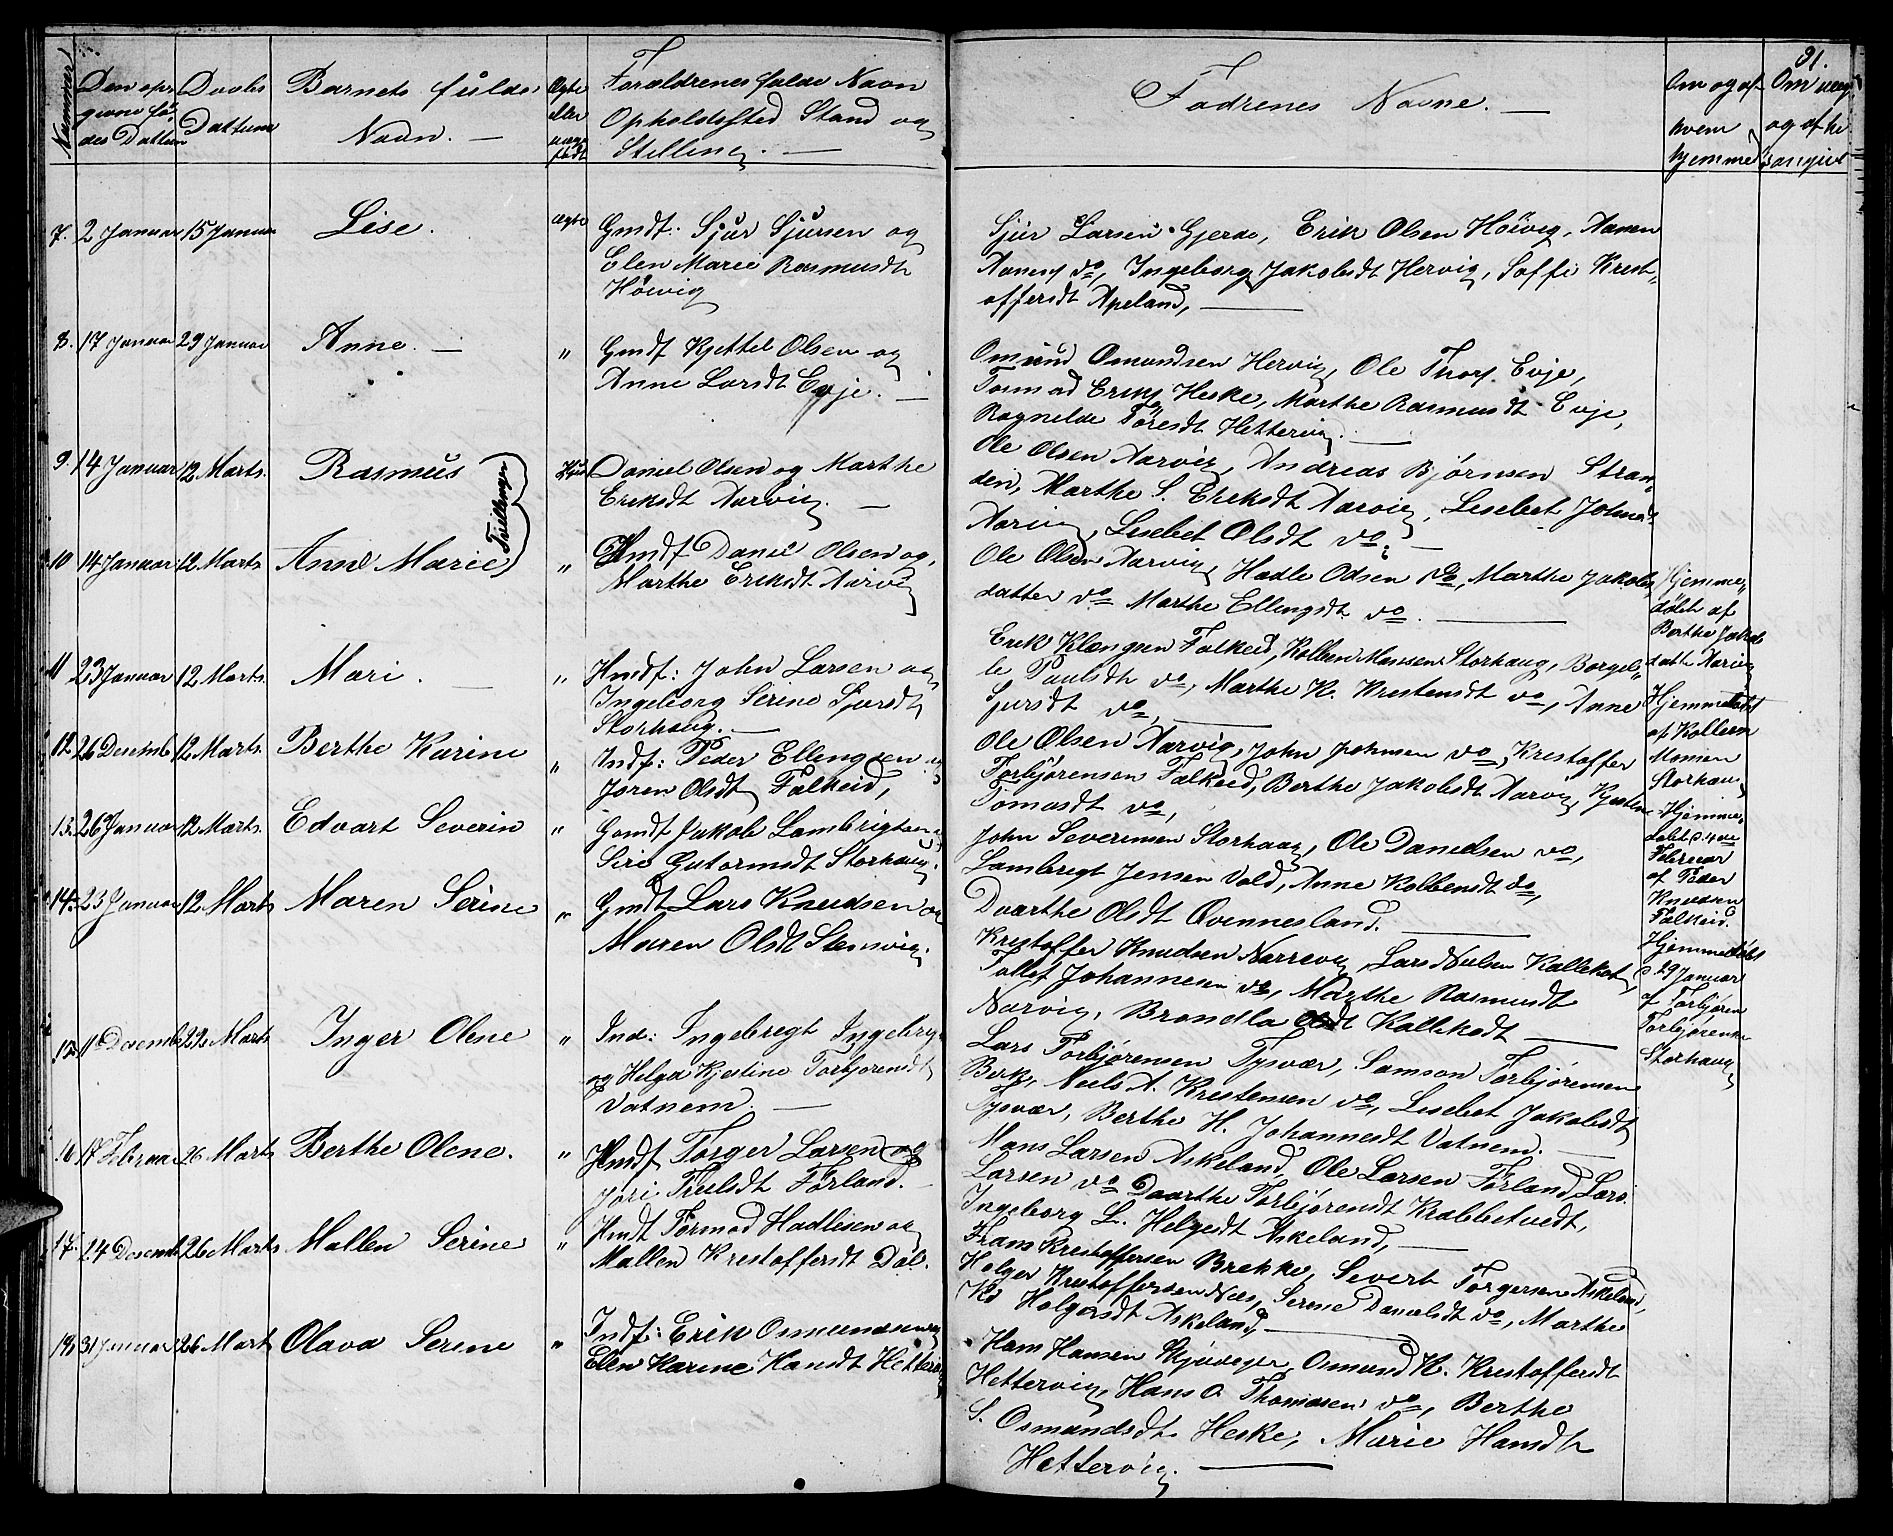 91.
Nummer
Den opgivne Fødes Dattum
Daabs Dattum
Barnets fulde Navn. —
Ægte eller uægte født
Forældrenes fulde Navn
Opholdssted Stand og
Stilling. —
Fadrenes Navne. —
Om og af hvem hjemme
Om
og af
7. 2 Januar 15 Januar Lise. ægte Gmdf. Sjur Sjursen og
Elen Marie Rasmusdt
Höivig
Sjur Larsen Gjerde, Erik Olsen Höivig, Aanen
Aanens do, Ingeborg Jakobsdt Hervig, Soffi Krest„
offersdt Apeland, —
8. 17 Januar 29 Januar Anne. — „ Gmdf Kjettel Olsen og
Anne Larsdt Evje. —
Omund Omundsen Hervig, Ole Thors. Evje,
Tormod Eriks Heske, Marthe Rasmusdt Evje,
Ragnelde Toresdt Hettervig. —
9. 14 Januar 12 Marts. Rasmus Daniel Olsen og Marthe
Eriksdt Aarvig. —
Ole Olsen Aarvig, Andreas Bjørnsen Stran„
den, Marthe S. Eriksdt Aarvig, Lisebet Johnsdt
Aarvig, Lisebet Olsdt do. —
Tvillinger
10 14 Januar 12 Marts Anne Marie „ Hmdf Daniel Olsen og
Marthe Eriksdt Aarvig
Ole Olsen Aarvig, Hadle Odsen do, Marthe Jakobs„
datter do Marthe Ellingsdt do. —
Hjemme„
døbt af
Berthe Jakobs
datt Aarvig
11 23 Januar 12 Marts. Mari. — „ Hmdf: John Larsen og
Ingeborg Serine Sjursdt
Storhaug. —
Erik Klængsen Falkeid, Kolben Monsen Storhaug, Borgel„
le Paulsdt do, Marthe K. Krestensdt do, Anne
Sjursdt do, —
Hjemmedøbt
af Kolben
Monsen
Storhaug
12. 26 Desemb 12 Marts. Berthe Karine „ Indf: Peder Ellengsen og
Joren Olsdt Falkeid,
Ole Olsen Aarvig, John Johnsen do, Krestoffer
Torbjørensen Falkeid, Berthe Jakobsdt Aarvig, Kjesten
Tomasdt do,
Hjemme„
døbt d. 4de
Februar
af Peder
Knudsen
Falkeid.
13. 26 Januar 12 Marts. Edvart Severin „ Gmdf Jakob Lambrigtsen og
Siri Gutormsdt Storhaug.
John Severinsen Storhaug, Ole Danielsen do,
Lambregt Jensen Vold, Anne Kolbensdt do,
Dvarthe Olsdt Qvennesland. —
Hjemmedøbt
d 29 Januar
af Torbjøren
Torbjørensen
Storhaug
14. 23 Januar 12 Marts Maren Serine „ Gmdf Lars Knudsen og
Maren Olsdt Stensvig.
Krestoffer Knudsen Narrevig, Lars Nielsen Kallekodt,
Tollef Johannesen do, Marthe Rasmusdt
Narvig, Brondla Olsdt Kallekodt —
15. 11 Desemb 22 Marts Inger Olene „ Ind: Ingebregt Ingebrigt
og Helga Kjestine Torbjorensdt
Vatnem. —
Lars Torbjørensen Tysvær, Samson Torbjørensen
Berk, Neels A. Krestensen do, Lisebet Jakobsdt
Tysvær, Berthe H. Johannesdt Vatnem. —
16 17 Februar 26 Marts Berthe Olene. „ Hmdf Torger Larsen og
Jori Truelsdt Førland. —
Mons Larsen Askeland, Ole Larsen Førland, Lars
Larsen do Daarthe Torbjørensdt Krabbetvedt,
Ingeborg L. Helgesdt Askeland, —
17. 24 Desemb 26 Marts Mallen Serine „ Hmdf Tormod Hadlesen og
Mallen Krestoffersdt Dal.
Frans Krestoffersen Brekke, Severt Torgersen Askeland,
Holger Krestoffersen Nes, Serene Danielsdt do, Marthe
Holgersdt Askeland, —
18. 31 Januar 26 Marts Olava Serene „ Indf: Erik Osmundsen og
Elen Karine Hansdt Hettervig
Hans Hansen, Osmund H. Krestoffersdt
Hettervig, Hans O Thomasen do, Berthe
S. Osmundsdt Heske, Marie Hansdt
Hettervig. —